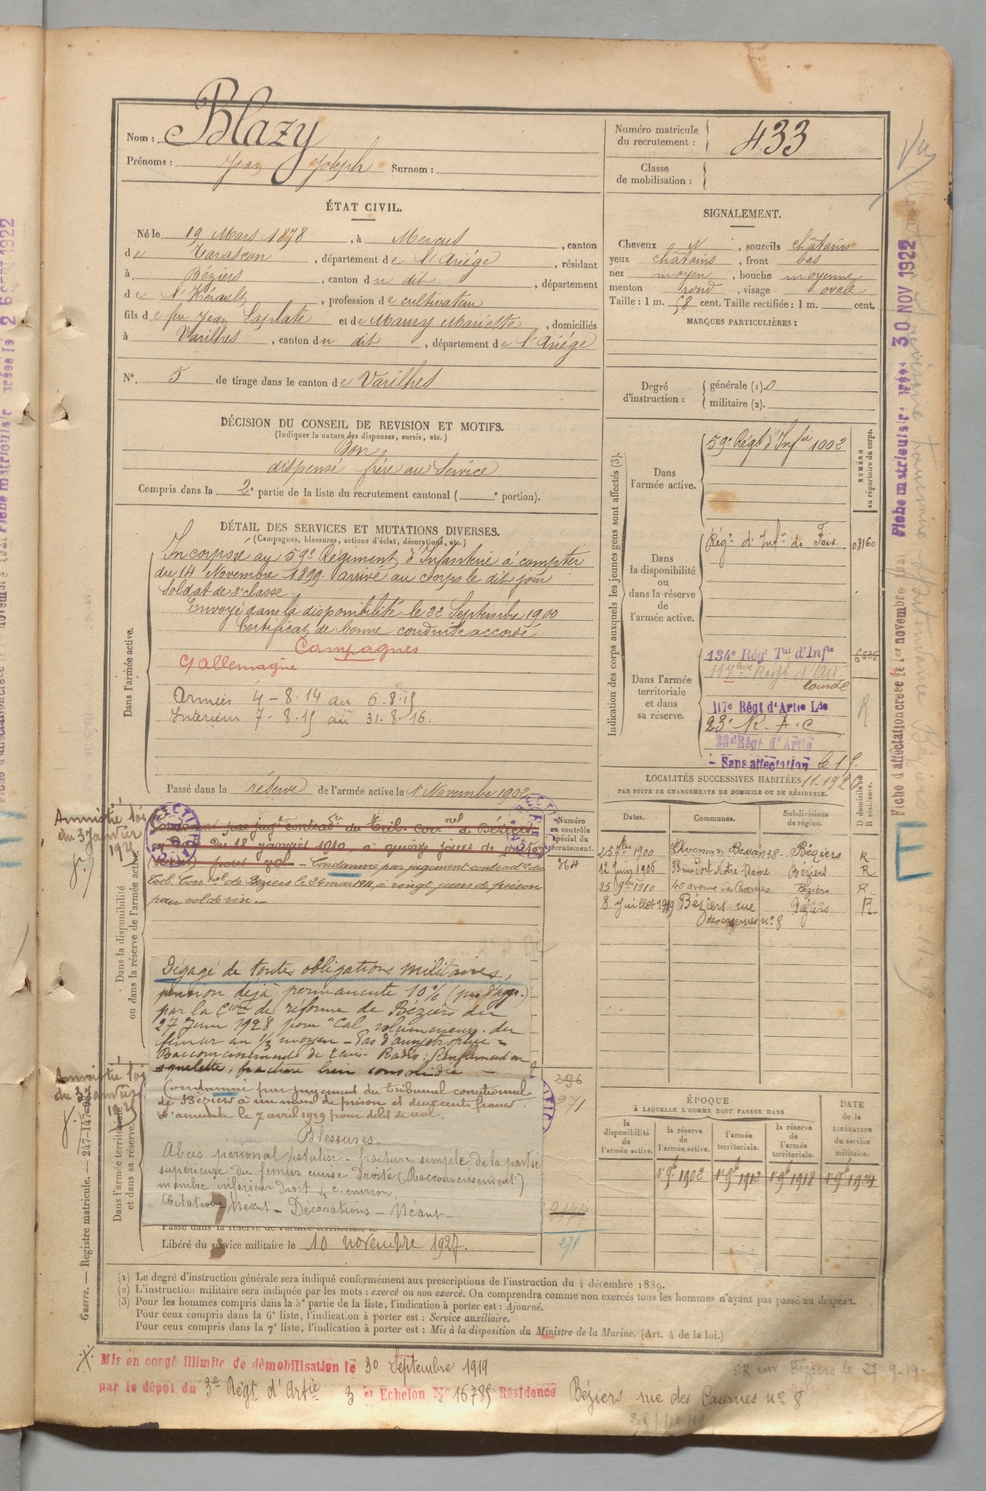 Nom : Blazy
Prénoms : Jean Joseph Surnom :
Numéro matricule du recrutement : 433
Classe de mobilisation :
ÉTAT CIVIL.
Né le 19 Mars 1878, à Mercus, canton
de Tarascon, département de l'Ariège, résidant
à Béziers, canton du dit, département
de l'Hérault, profession de cultivateur
fils de feu Jean Laplate et de Maury Mariette, domiciliés
à Varilhes, canton du dit, département de l'Ariège
N°. 5 de tirage dans le canton de Varilhes
SIGNALEMENT.
Cheveux N, sourcils châtains
yeux châtains, front bas
nez moyen, bouche moyenne
menton rond, visage ovale
Taille : 1 m. 58 cent. Taille rectifiée : 1 m. cent.
MARQUES PARTICULIÈRES :
Degré d'instruction : générale (1). 0
militaire (2).
DÉCISION DU CONSEIL DE REVISION ET MOTIFS.
(Indiquer la nature des dispenses, sursis, etc.)
Bon
dispensé frère au Service
Compris dans la 2e partie de la liste du recrutement cantonal ( e portion).
DÉTAIL DES SERVICES ET MUTATIONS DIVERSES.
(Campagnes, blessures, actions d'éclat, décorations, etc.)
Dans l'armée active.
Incorporé au 59e Régiment d'Infanterie à compter
du 14 Novembre 1899. arrivé au corps le dit jour
Soldat de 2e classe
Envoyé dans la disponibilité le 22 Septembre 1900
Certificat de bonne conduite accordé
Campagnes
c/ Allemagne
Armées 4-8-14 au 6-8-15
Intérieur 7-8-15 au 31-8-16.
Passé dans la réserve de l'armée active le 1 Novembre 1902
Indication des corps auxquels les jeunes gens sont affectés (3).
NUMÉRO au répertoire du corps.
Dans l'armée active.
59e Régt d'Infie 1002
Dans la disponibilité ou dans la réserve de l'armée active.
Régt d'Infie de Foix 08160
Dans l'armée territoriale et dans sa réserve.
134e Régt Tal d'Infie
lourde
117e Régt d'Artie Lde
23e R.A.C
23e Régt d'Artie
- Sans affectation
LOCALITÉS SUCCESSIVES HABITÉES
PAR SUITE DE CHANGEMENTS DE DOMICILE OU DE RÉSIDENCE.
Dates. Communes. Subdivisions de région. D. domicile R. résidence.
25 9bre 1900 Béziers R
12 juin 1906 38 rue Port Notre-Dame Béziers R
25 9bre 1910 40 avenue des Casernes Béziers R
8 Juillet 1919 Béziers rue des casernes n° 8 Béziers R
Numéro au contrôle spécial du recrutement.
364
Dans la disponibilité ou dans la réserve de l'armée active
Amnistié loi
du 3 Janvier
1925
Condamné par jugt contradre du Trib. Corrnel de Béziers
du 18 janvier 1910, à quinze jours de prison
pour vol - Condamné par jugement contradre du
Trib. Corrnel de Béziers le 24 mai 1911, à vingt jours de prison
pour vol de vin.
Dégagé de toutes obligations militaires,
pension déjà permanente 10% (pas d'agg.)
par la Cion de réforme de Béziers du
27 Juin 1928 pour "Cal volumineux du
fémur au 1/3 moyen - Pas d'amyotrophie -
squelette, fracture bien consolidée -
Amnistie loi
du 3 Janvier
1925
Dans l'armée territoriale et dans sa réserve.
Condamné par jugement du tribunal correctionnel
de Béziers à un mois de prison et deux cents francs
d'amende le 7 avril 1919 pour délit de vol.
Blessures.
Abcès péronial fistulisé - fracture simple de la partie
supérieure du fémur cuisse Droite (Raccourcissement)
membre inférieur Droit 4 c. environ.
Citations Néant - Décorations - Néant -
296
271
2144
271
Passé dans la réserve de l'armée territoriale le
Libéré du service militaire le 10 novembre 1927.
ÉPOQUE
À LAQUELLE L'HOMME DOIT PASSER DANS
la disponibilité de l'armée active.
la réserve de l'armée active. 1er 9bre 1902
l'armée territoriale. 1er 9bre 1912
la réserve de l'armée territoriale. 1er 9bre 1918
DATE de la LIBÉRATION du service militaire. 1er 9bre 1924
(1) Le degré d'instruction générale sera indiqué conformément aux prescriptions de l'instruction du 4 décembre 1889.
(2) L'instruction militaire sera indiquée par les mots : exercé ou non exercé. On comprendra comme non exercés tous les hommes n'ayant pas passé au drapeau.
(3) Pour les hommes compris dans la 5e partie de la liste, l'indication à porter est : Ajourné.
Pour ceux compris dans la 6e liste, l'indication à porter est : Service auxiliaire.
Pour ceux compris dans la 7e liste, l'indication à porter est : Mis à la disposition du Ministre de la Marine. (Art. 4 de la loi.)
Guerre. — Registre matricule. — 247-147-
Mis en congé illimité de démobilisation le 30 Septembre 1919
par le dépôt du 3e Régt d'Artie 3 er Echelon N° 16785 Résidence Béziers rue des Casernes n° 8
SR sur Béziers le 27-9-19-
Fiche d'affectation créée le 1er novembre 1921
Fiche matriculaire créée 30 NOV 1922